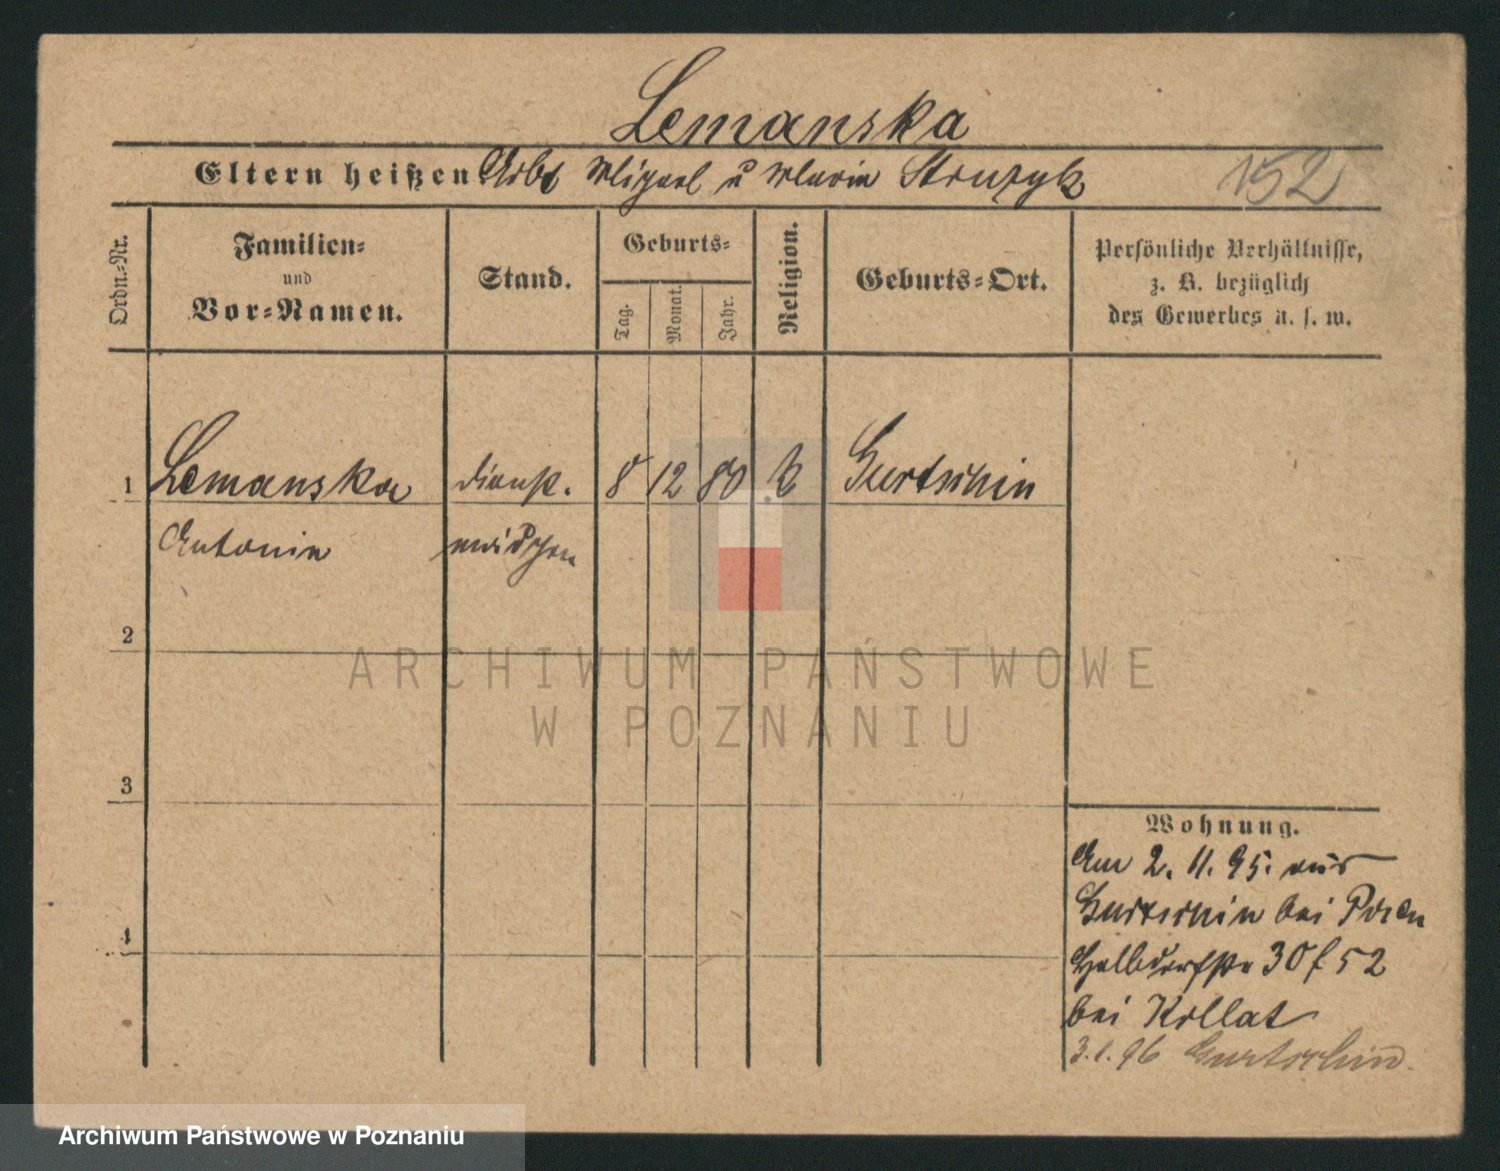 Lemanska
Eltern heißen Arbt Michael u Maria Struzyk
152
Ordn.=Nr.
Familien=
und
Vor=Namen.
Stand.
Geburts=
Tag.
Monat.
Jahr.
Religion.
Geburts=Ort.
Persönliche Verhältnisse,
z. B. bezüglich
des Gewerbes u. s. w.
1 Lemanska dienst. 8 12 80 k Gurtschin
Antonie mädchen
2
3
4
ARCHIWUM PAŃSTWOWE
W POZNANIU
Wohnung.
Am 2. 11. 95. aus
Gurtschin bei Posen
Halbdorfstr 30 f 52
bei Kollat
3.1.96 Gurtschin.
Archiwum Państwowe w Poznaniu